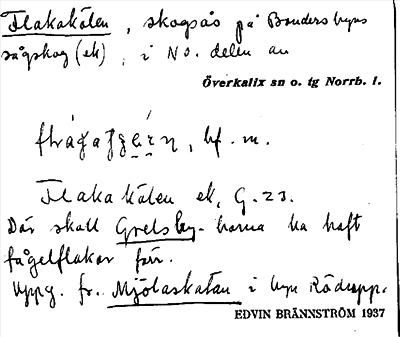 Flakakölen, skogsås på Bondersbyns
sågskog (ek), i NO. delen av
Överkalix sn o. tg Norrb. l.
bf. m.
Flakakölen ek, G. 23.
Där skall Grelsby-barna ha haft
fågelflakar förr.
Uppg. fr. Mjölaskatan i byn Rödupp.
EDVIN BRÄNNSTRÖM 1937